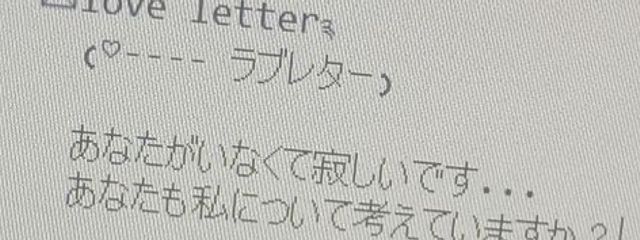 love letter
(♡---- ラブレター)
あなたがいなくて寂しいです...
あなたも私について考えていますか?